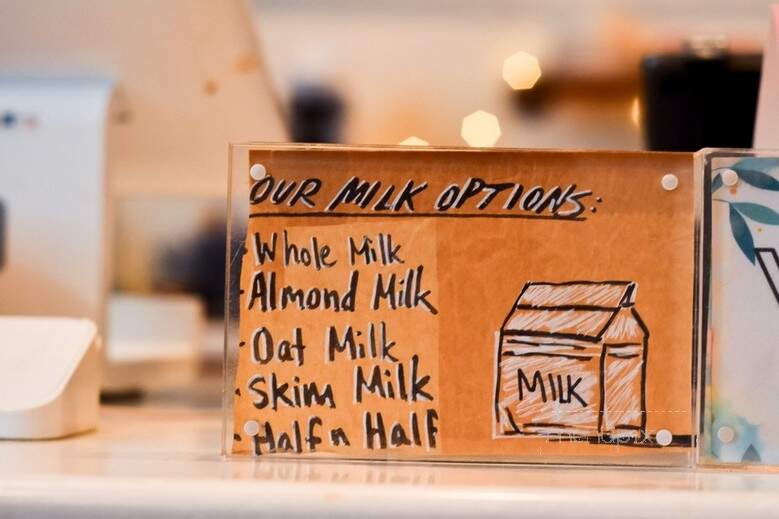 OUR MILK OPTIONS:
Whole Milk
Almond Milk
Oat Milk
Skim Milk
Half n Half
MILK